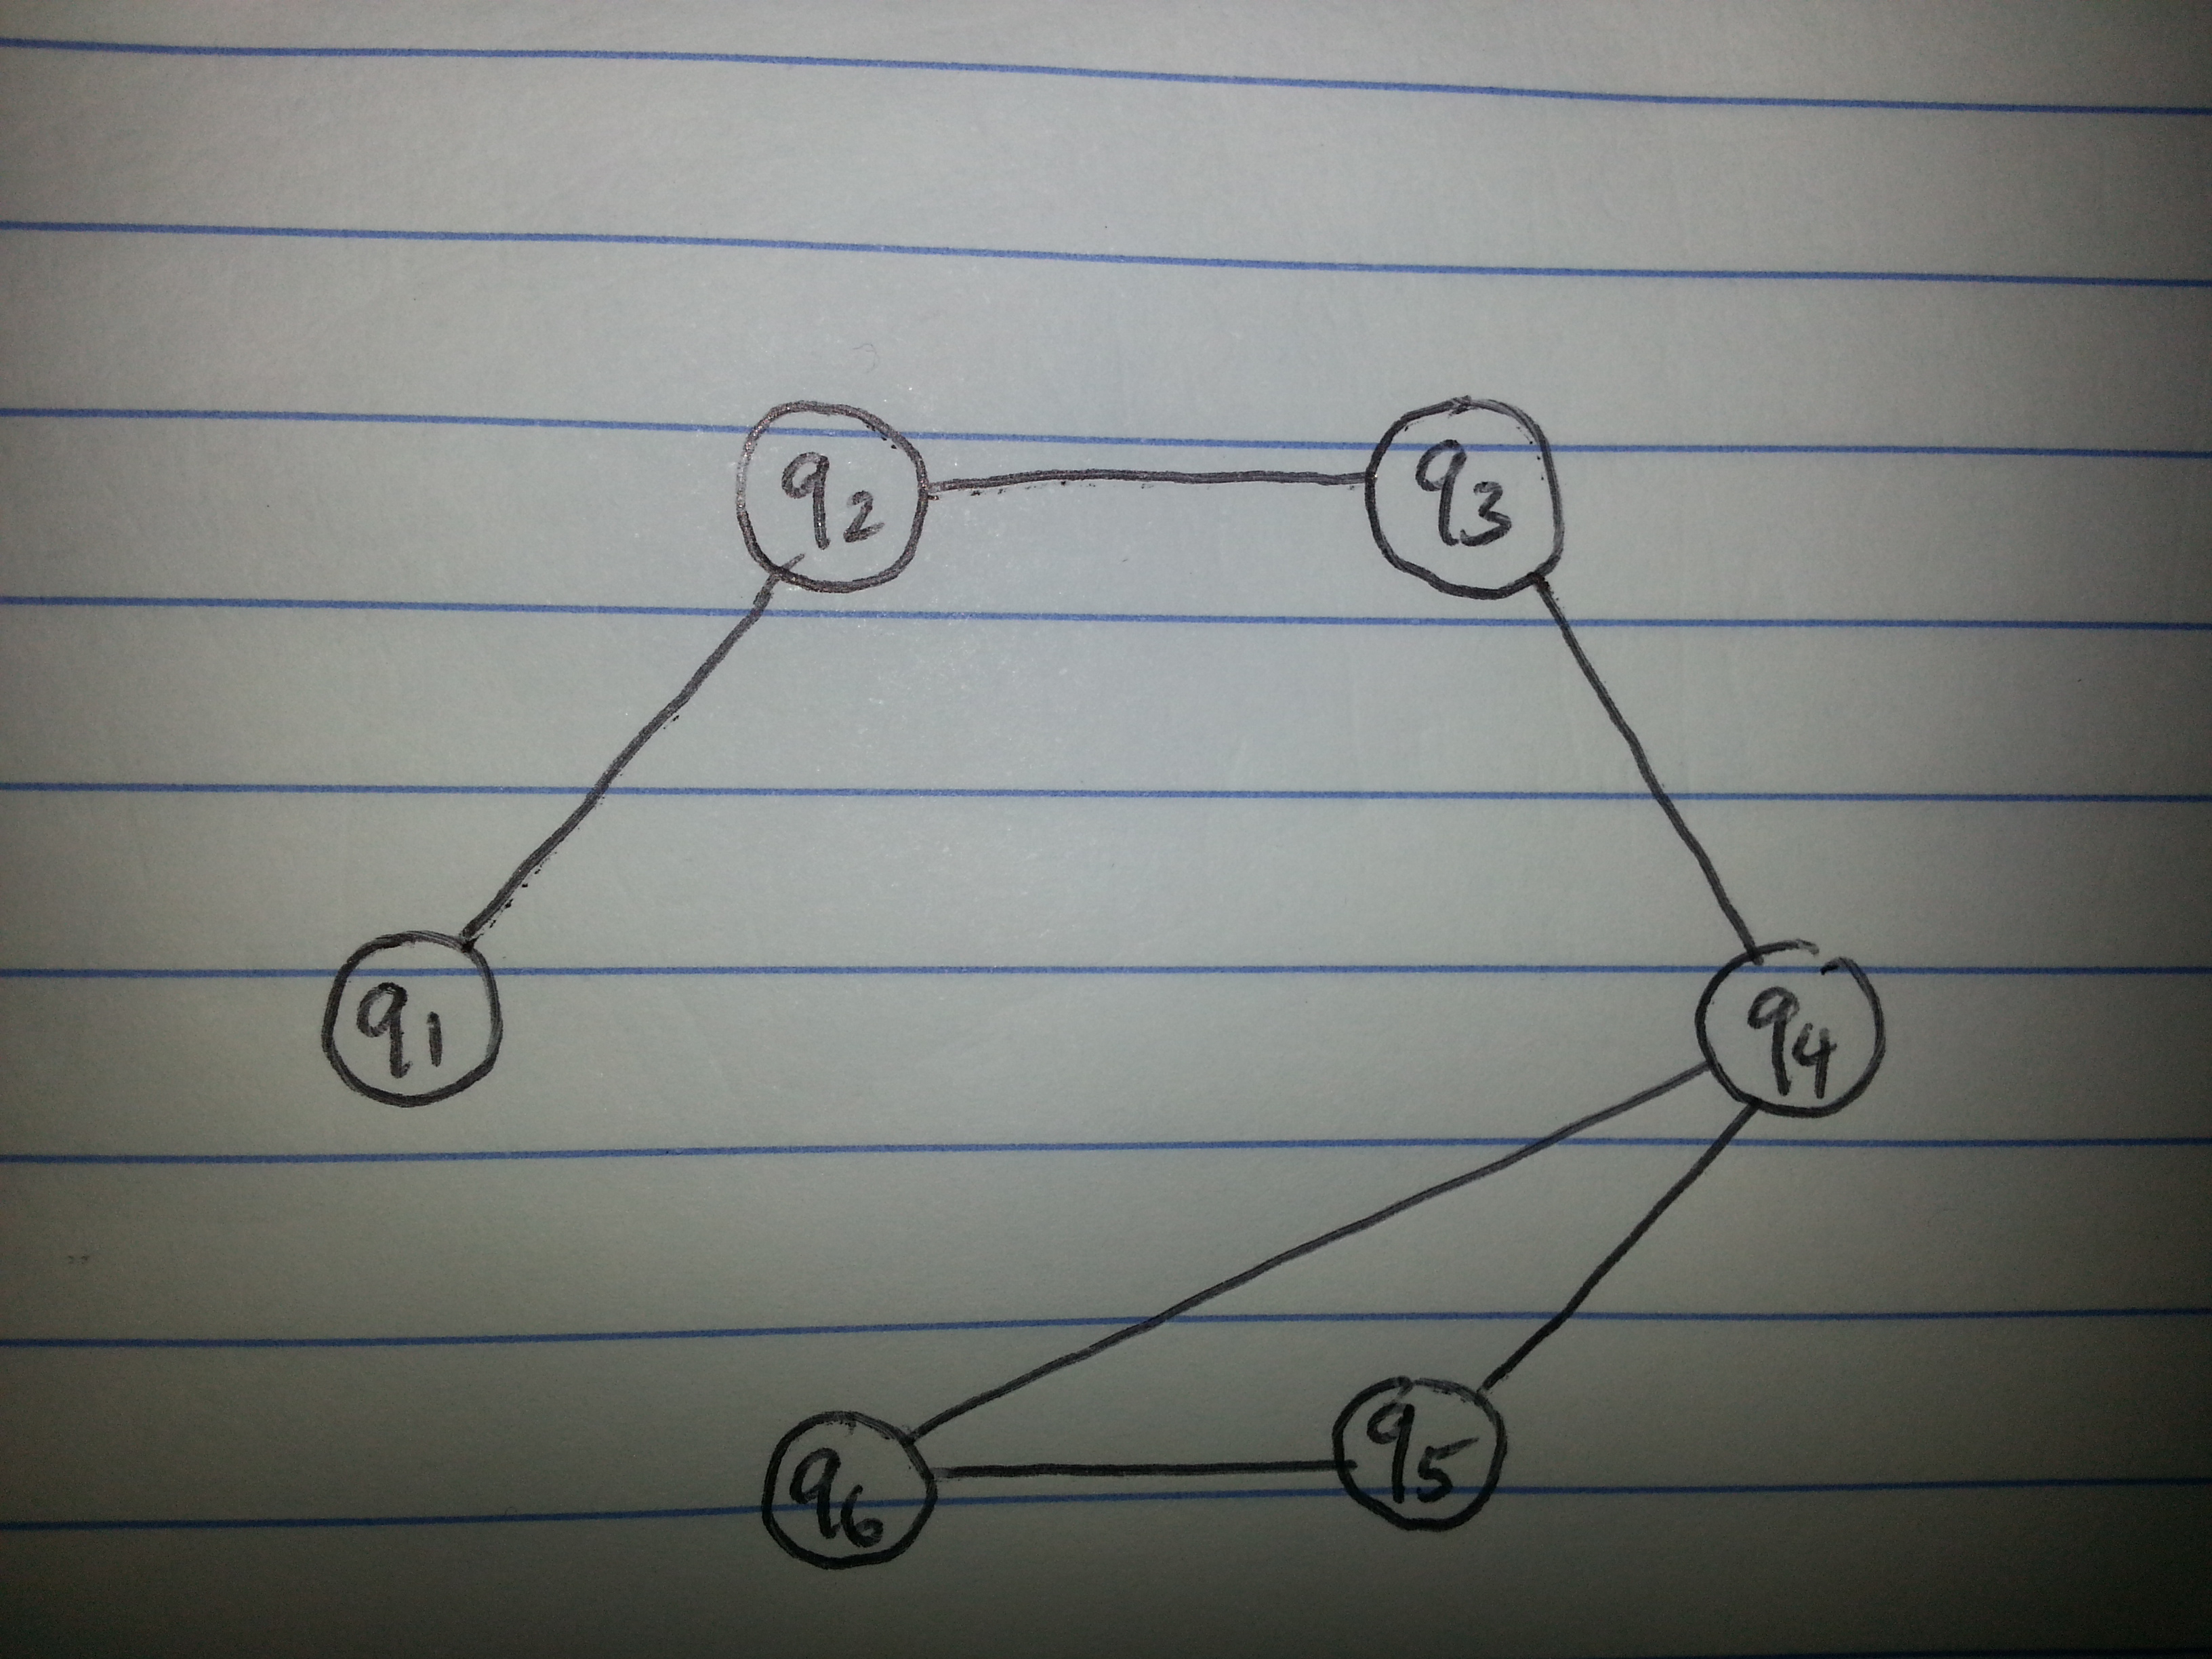 q2
q3
q1
q4
q6
q5